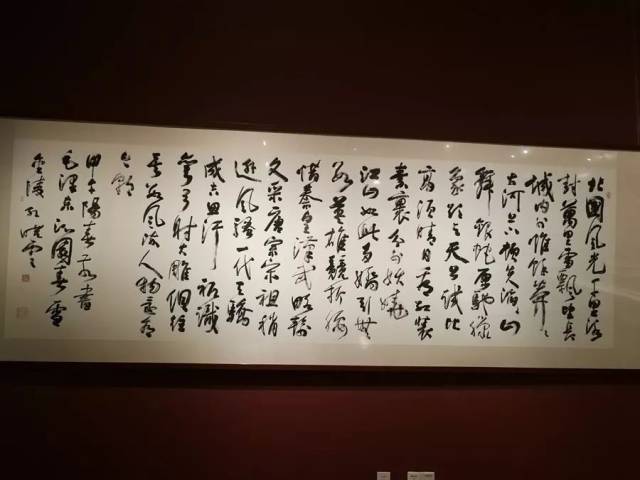 北國風光千里冰
封萬里雪飄望長
城內外惟餘莽莽
大河上下頓失滔滔山
舞銀蛇原馳蠟
象欲與天公試比
高須晴日看紅裝
素裹分外妖嬈
江山如此多嬌引無
數英雄競折腰
惜秦皇漢武略輸
文采唐宗宋祖稍
遜風騷一代天驕
成吉思汗祇識
彎弓射大雕俱往
矣數風流人物還看
今朝
甲午陽春書
毛澤東沁園春雪
金陵曉雲